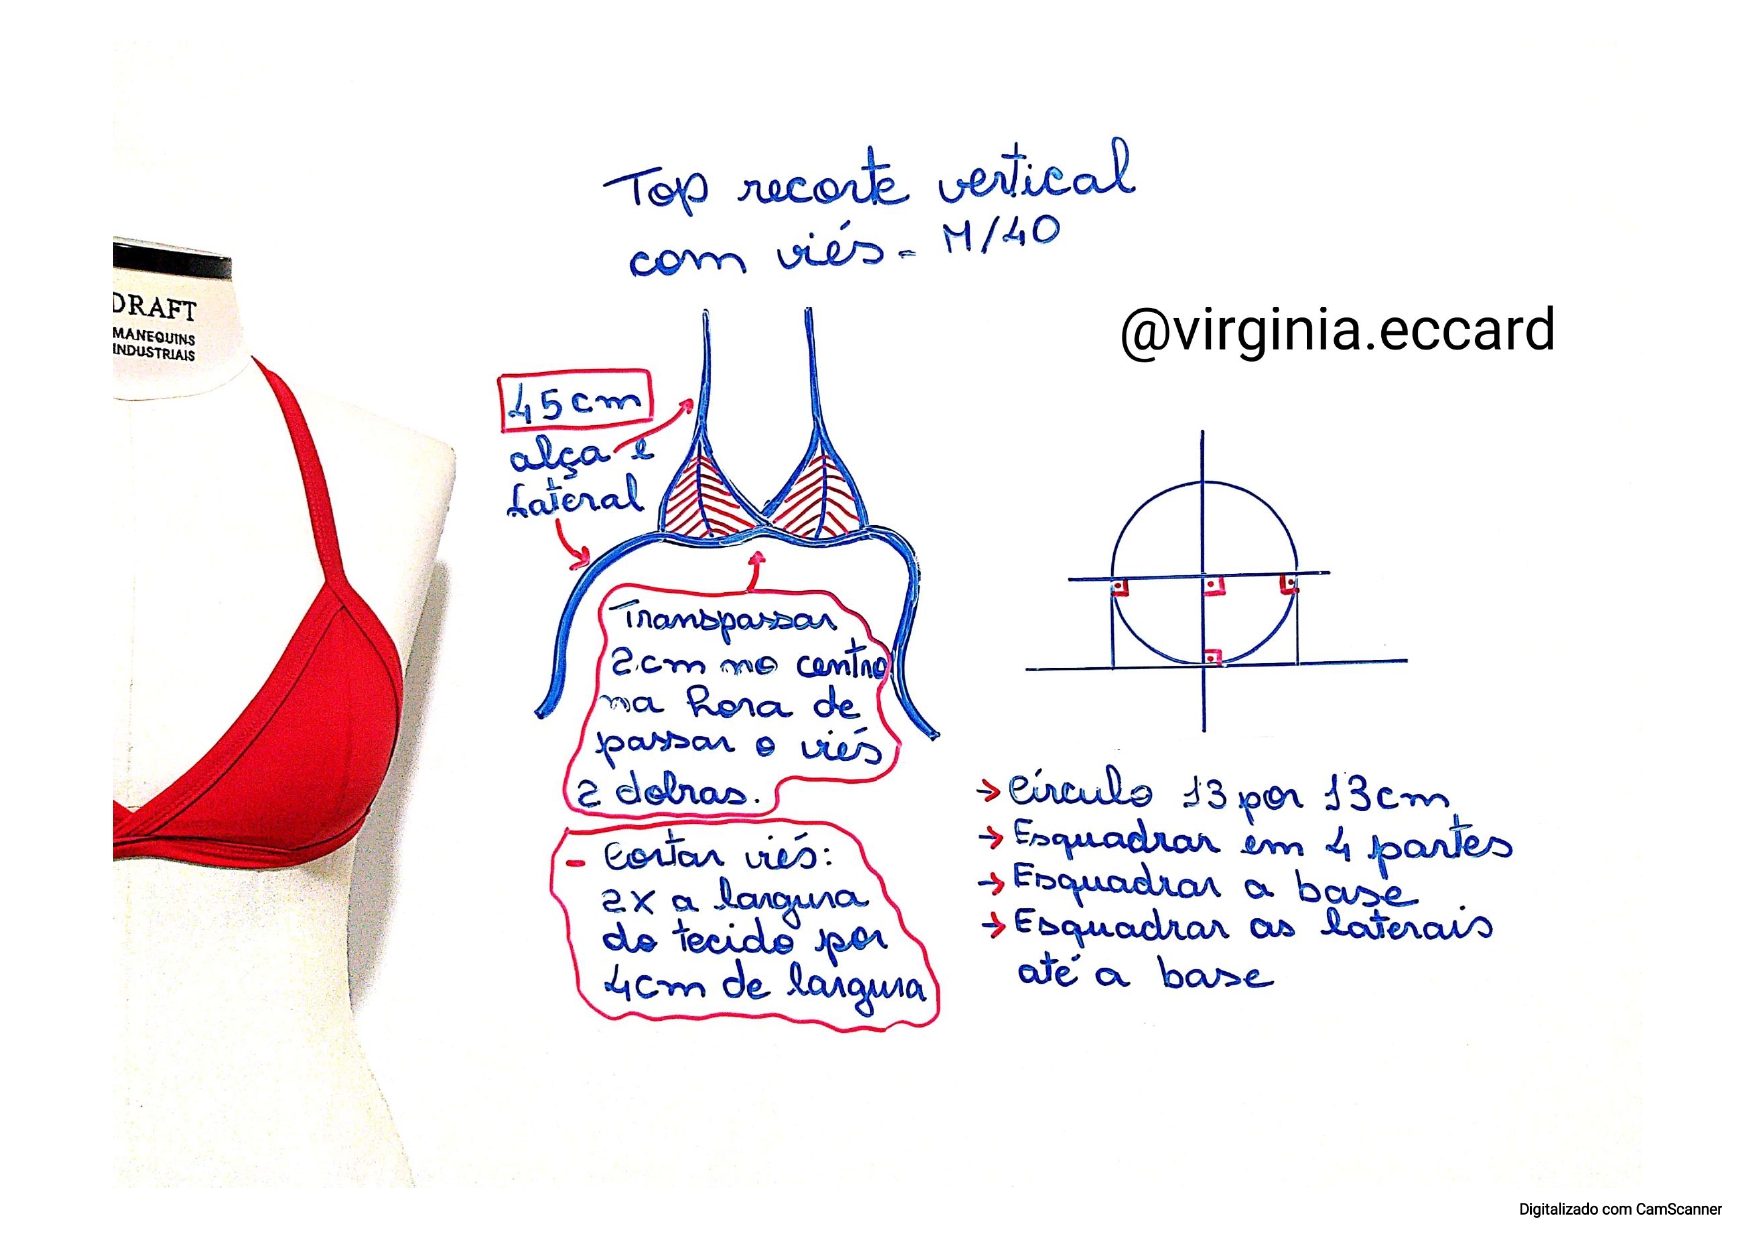 Top recorte vertical
com viés - M/40
@virginia.eccard
DRAFT
MANEQUINS
INDUSTRIAIS
45cm
alça e
lateral
Transpassar
2cm no centro
na hora de
passar o viés
2 dobras.
- Cortar viés:
2X a largura
do tecido por
4cm de largura
→ Círculo 13 por 13cm
→ Esquadrar em 4 partes
→ Esquadrar a base
→ Esquadrar as laterais
até a base
Digitalizado com CamScanner